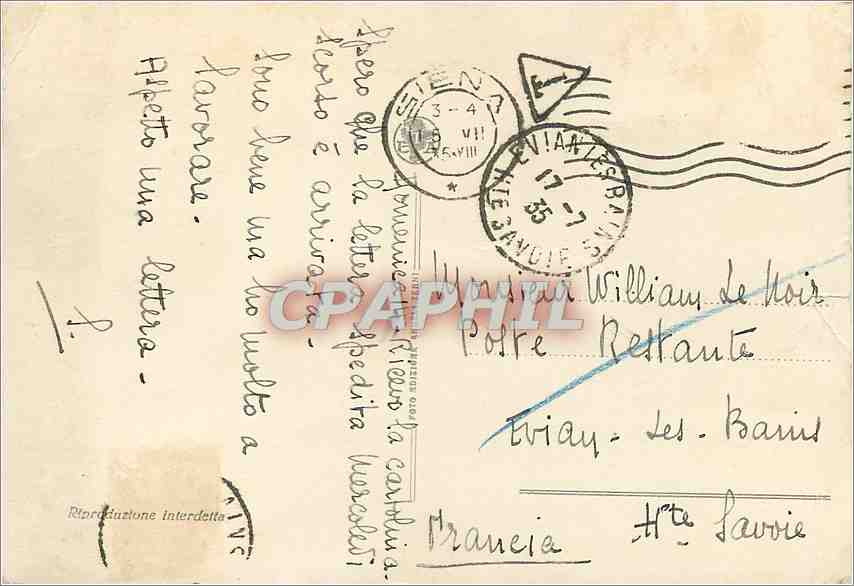 Domenica 14. Ricevo la cartolina.
Spero che la lettera spedita Mercoledì
scorso è arrivata -
Sono bene ma ho molto a
lavorare.
Aspetto una lettera -
SIENA
3-4
VII
T
EVIAN LES BAINS
17 -7
35
HTE SAVOIE
Monsieur William Le Noir
Poste Restante
Evian-Les-Bains
Hte Savoie
Francia
Riproduzione interdetta
CPAPHIL